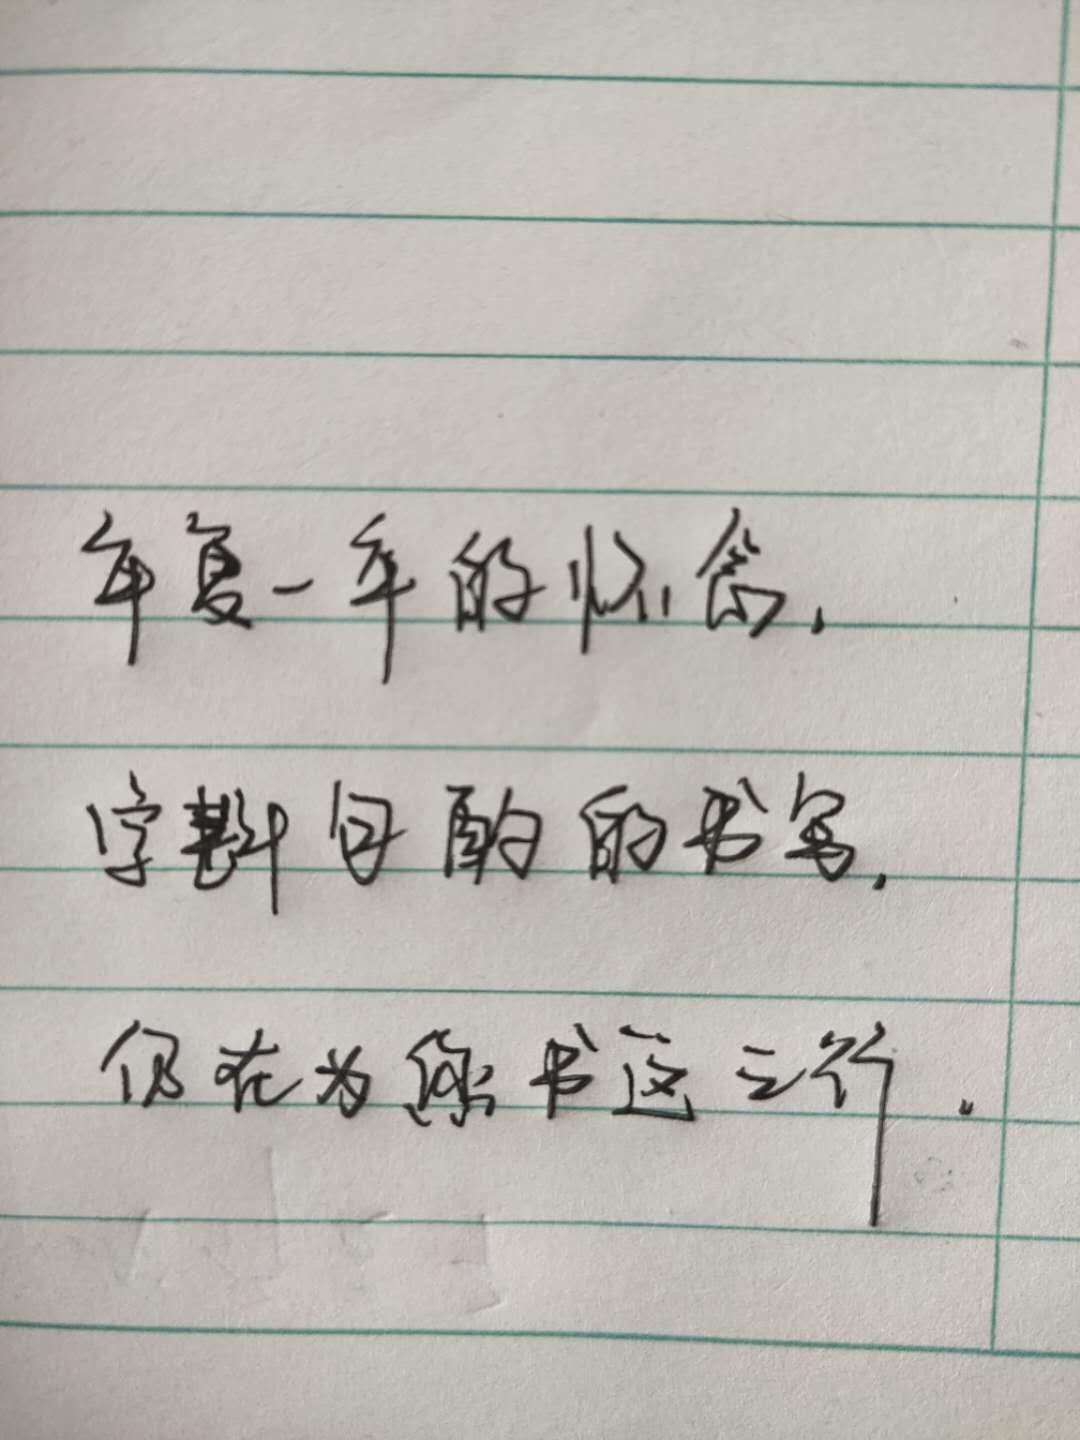 年复一年的怀念,
字斟句酌的书写.
仍在为你书这三行.